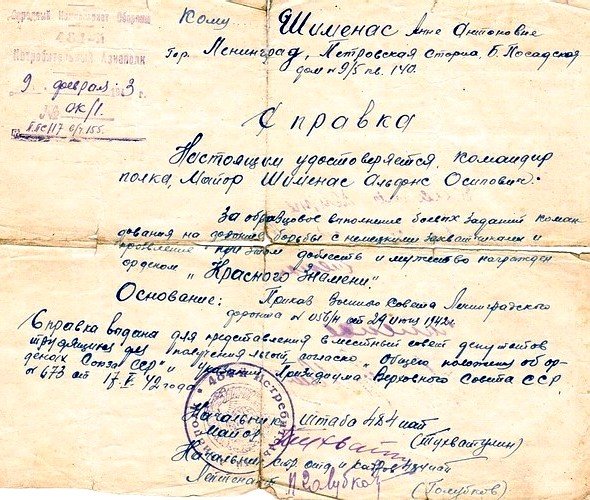 Народный Комиссариат Обороны
Истребительный Авиаполк
9 февраля 3 г.
№ ОК/1.
Кому Шименас Анне Антоновне
гор. Ленинград, Петровская сторна, Б. Посадская
дом № 9/5 кв. 140.
Справка
Настоящим удостоверяется, командир
полка, Майор Шименас Альфонс Осипович.
За образцовое выполнение боевых заданий коман-
дования на фронте борьбы с немецкими захватчиками и
проявленные при этом доблесть и мужество награжден
орденом „Красного Знамени".
Основание: Приказ Военного Совета Ленинградского
фронта № 056/н от 24 1942г.
Справка выдана для представления в местный совет депутатов
трудящихся для получения льгот, согласно „Общего положен об ор-
денах Союза ССР" и Президиума Верховного Совета ССР,
№ 673 от 17.V.42 года
Начальник штаба 484 иап
Майор (Тухватулин)
Начальник стр отд и кадров 484 иап
Лейтенант Голубков (Голубков)